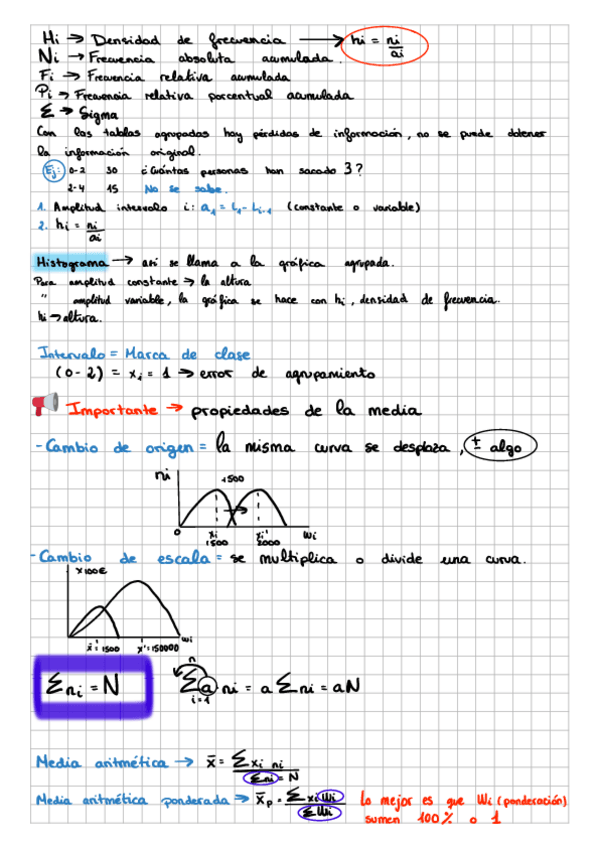 Hi → Densidad de frecuencia → hi = ni/ai
Ni → Frecuencia absoluta acumulada.
Fi → Frecuencia relativa acumulada
Pi → Frecuencia relativa porcentual acumulada
Σ → Sigma
Con las tablas agrupadas hay pérdidas de información, no se puede obtener
la información original.
Ej: 0-2 30 ¿Cuántas personas han sacado 3?
2-4 15 No se sabe.
1. Amplitud intervalo i: a₁ = Lᵢ - Lᵢ₋₁ (constante o variable)
2. hi = ni/ai
Histograma → así se llama a la gráfica agrupada.
Para amplitud constante → la altura
" amplitud variable, la gráfica se hace con hi, densidad de frecuencia.
hi → altura.
Intervalo = Marca de clase
(0-2) = xᵢ = 1 → error de agrupamiento
Importante → propiedades de la media
- Cambio de origen = la misma curva se desplaza, ± algo
ni
+500
0 xi xi' wi
1500 2000
- Cambio de escala = se multiplica o divide una curva.
x100€
wi
x̄ = 1500 x' = 150000
Σni = N
n
Σ a ni = a Σni = aN
i=1
Media aritmética → x̄ = Σ xi ni / Σni = N
Media aritmética ponderada → x̄p = Σ xi Wi / Σ Wi Lo mejor es que Wi (ponderación)
sumen 100% o 1